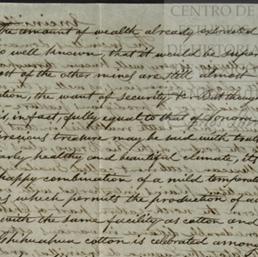 CENTRO DE
the amount of wealth already extracted
so well known, that it would be super
of the other mines are still almost
the want of security
is in fact fully equal to that of Sonora
precious treasure may be said with truth
healthy and beautiful climate, its
happy combination of a mild temperat
which permits the production of
with the same facility as cotton and
Chihuahua cotton is celebrated among